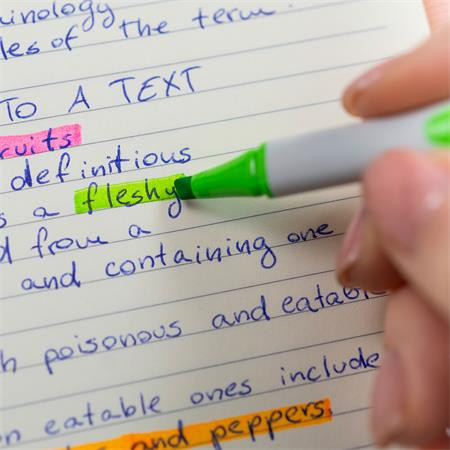 inology
les of the term.
TO A TEXT
ruits
definitious
s a fleshy
d from a
and containing one
h poisonous and eatabl
n eatable ones include
and peppers